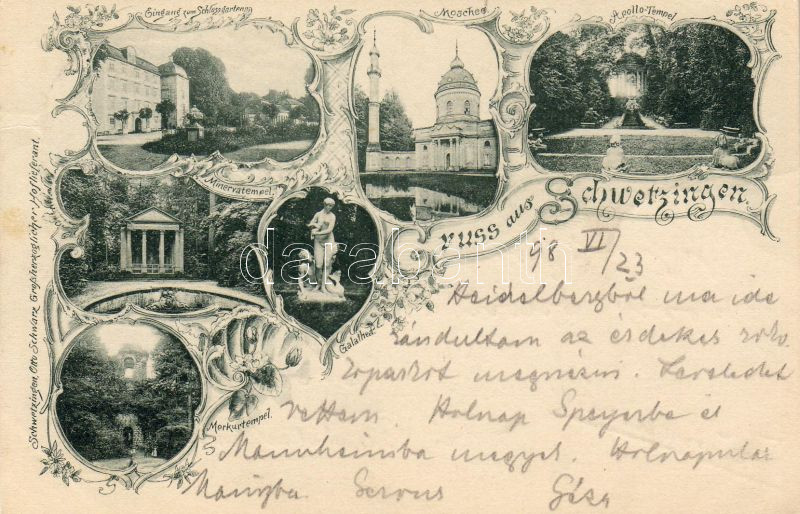 Eingang zum Schlossgarten
Moschee
Apollo-Tempel
Minervatempel.
Gruss aus Schwetzingen.
Galathea
Merkurtempel.
Schwetzingen, Otto Schwarz Großherzoglicher Hoflieferant.
darabanth
98 VI/23
Heidelbergből ma ide
rándultam az érdekes
megnézni. Leveledet
vettem. Holnap Speyerbe és
Mannheimba megyek. Holnapután
Mainzba. Servus Géza